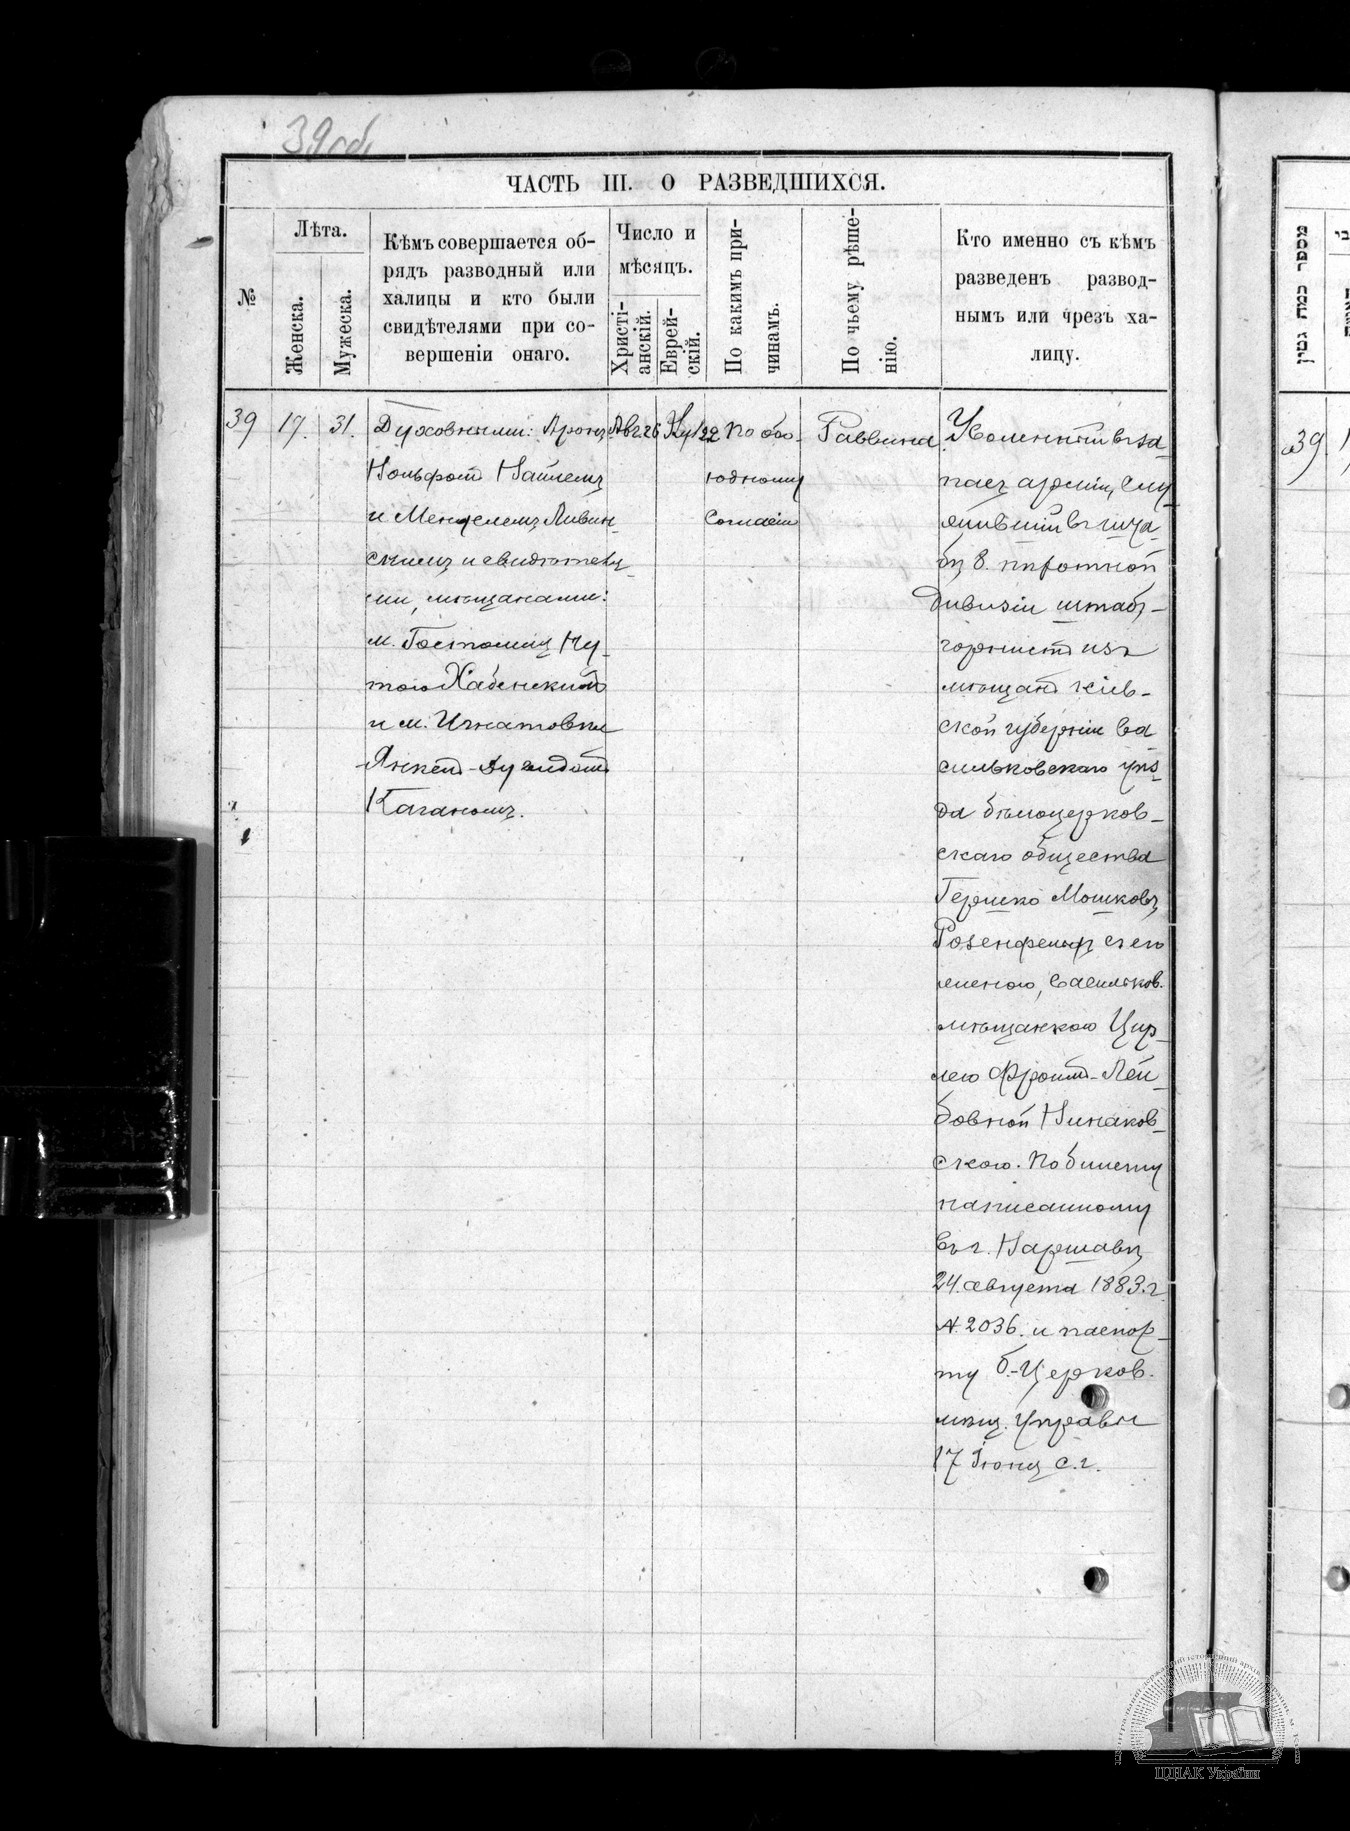 39 об.
ЧАСТЬ III. О РАЗВЕДШИХСЯ.
№
Лѣта.
Женска.
Мужеска.
Кѣмъ совершается об-
рядъ разводный или
халицы и кто были
свидѣтелями при со-
вершеніи онаго.
Число и
мѣсяцъ.
Христі-
анскій.
Еврей-
скій.
По какимъ при-
чинамъ.
По чьему рѣше-
нію.
Кто именно съ кѣмъ
разведенъ развод-
нымъ или чрезъ ха-
лицу.
39
17.
31.
Духовными: Арономъ
Вольфомъ
и Менделемъ Ливин-
скимъ и свидѣтеля-
ми, мѣщанами:
м. Гостомля Ну-
тою Хабенскимъ
и м. Игнатовки
Янкель
Каганомъ.
Авг. 26
22
По обо-
юдному
согласію
Раввина
Уволенный въ за-
пасъ арміи, слу-
жившій въ шта-
бѣ 8. пѣхотной
дивизіи штабъ-
горнистъ изъ
мѣщанъ Кіев-
ской губерніи Ва
сильковскаго уѣз-
да бѣлоцерков-
скаго общества
Гершко Мошковъ
Розенфельдъ съ его
женою, васильков.
мѣщанкою Цир-
лею Фроимъ-Лей-
бовной
скою. По билету
написанному
въ г. Варшавѣ
24. августа 1883. г.
№. 2036. и паспор-
ту б.-Церков.
мѣщ. управы
17 Іюня с. г.
מספר כמה גטין
39.
ЦДІАК України